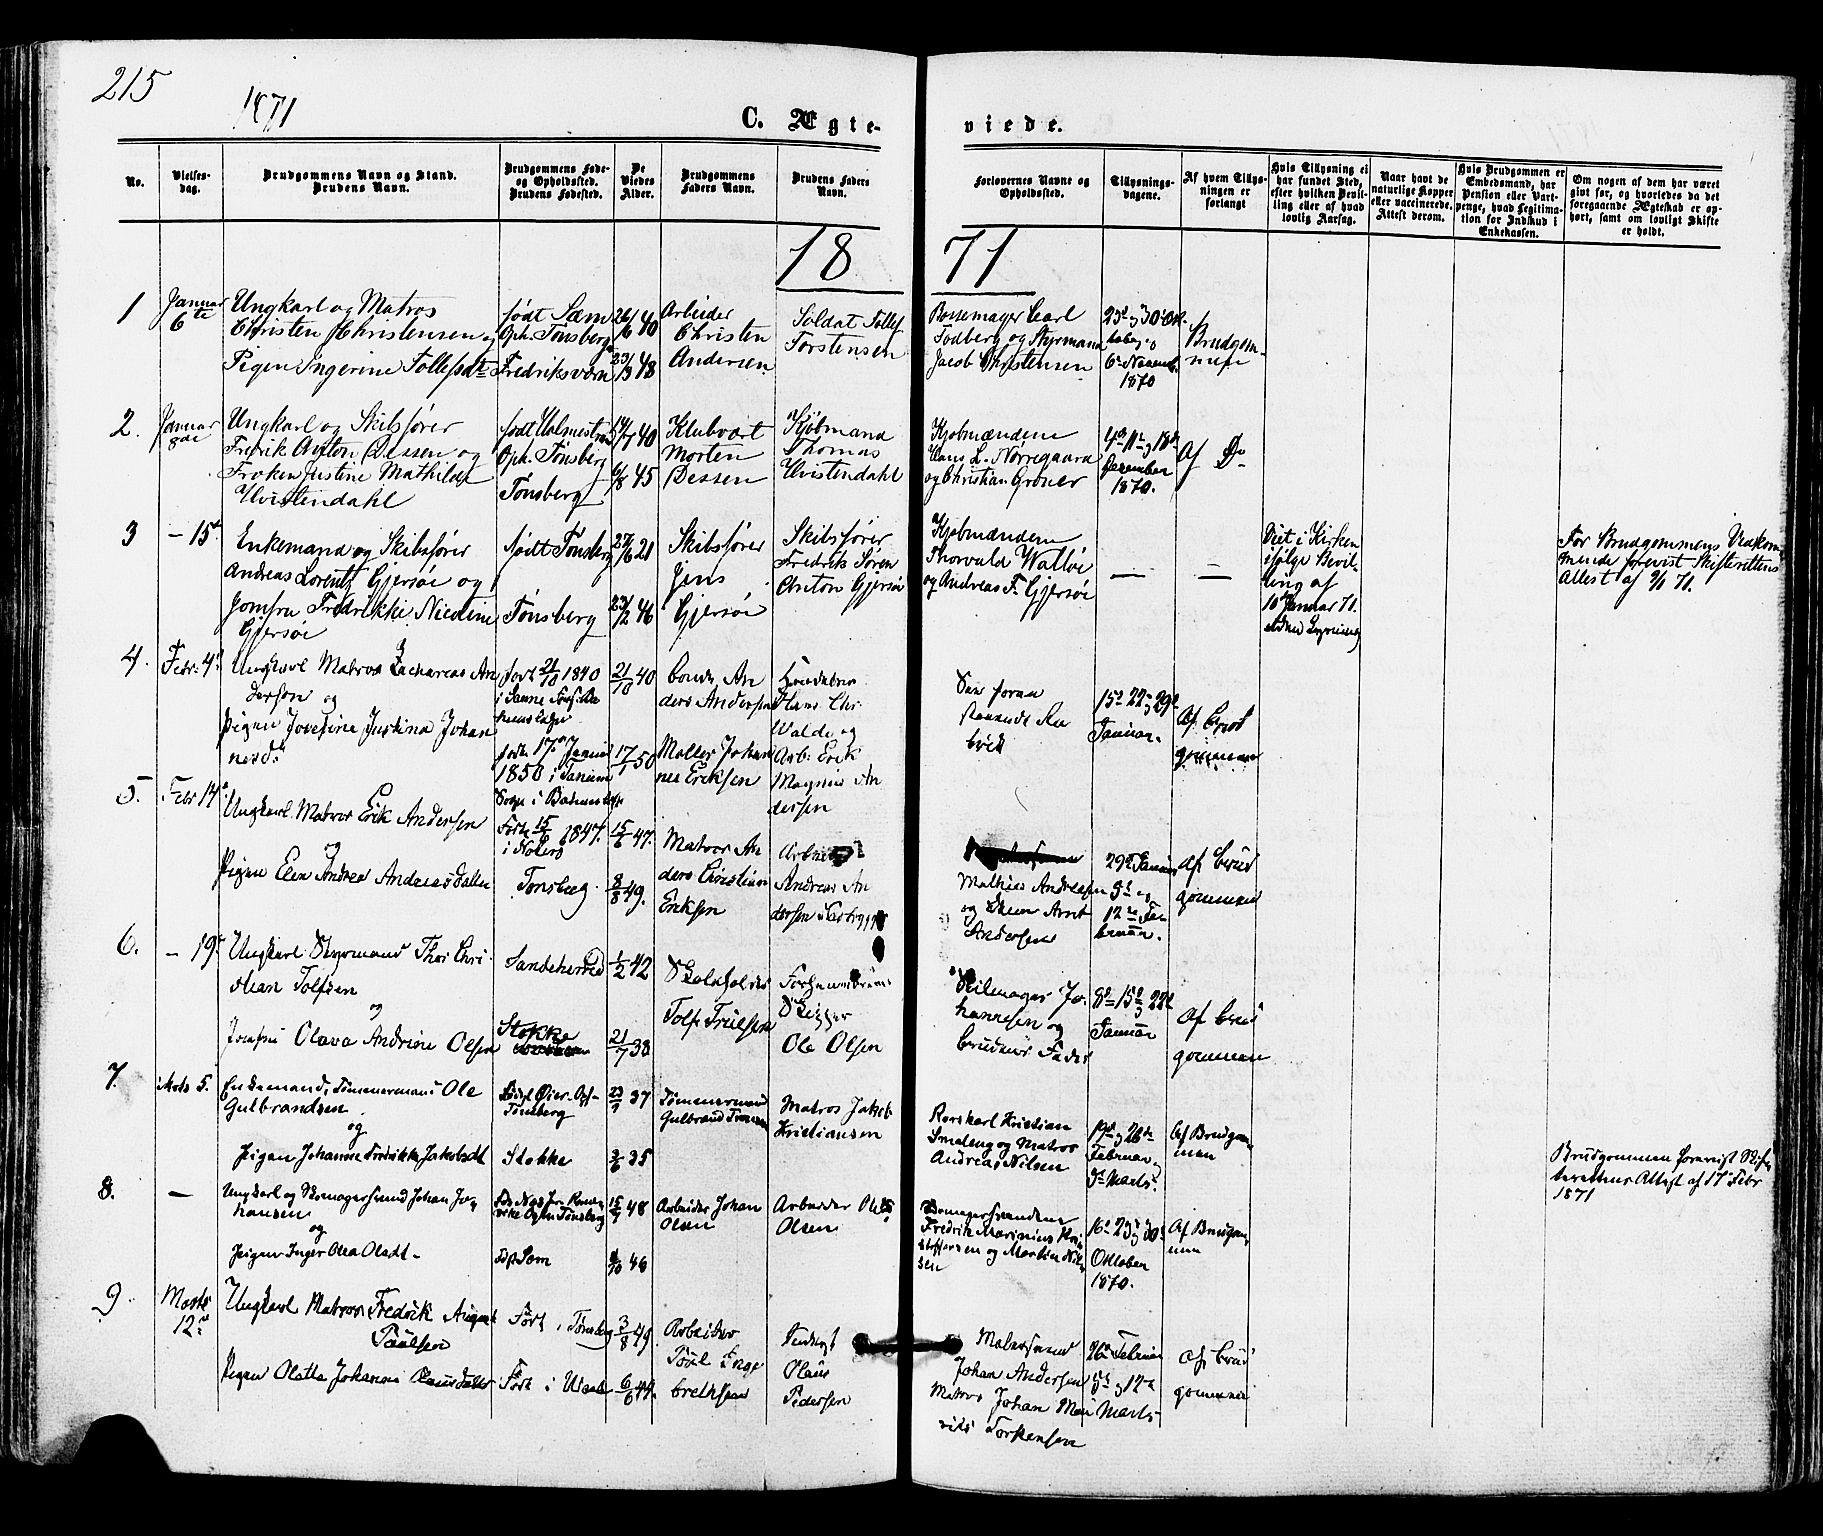 215
1871
C. Ægte-
viede.
No.
Vielses-
dag.
Brudgommens Navn og Stand.
Brudens Navn.
Brudgommens Føde-
og Opholdssted.
Brudens Fødested.
De
Viedes
Alder.
Brudgommens
Faders Navn.
Brudens Faders
Navn.
Forlovernes Navne og
Opholdssted.
Tillysnings-
dagene.
Af hvem Tillys-
ningen er
forlangt
Hvis Tillysning ei
har fundet Sted,
efter hvilken Bevil-
ling eller af hvad
lovlig Aarsag.
Naar havt de
naturlige Kopper
eller vaccinerede.
Attest derom.
Hvis Brudgommen er
Embedsmand, har
Pension eller Vart-
penge, hvad Legitima-
tion for Indskud i
Enkekassen.
Om nogen af dem har været
gift før, og hvorledes da det
foregaaende Ægteskab er op-
hørt, samt om lovligt Skifte
er holdt.
18
71
1
Januar
6te
Ungkarl og Matros
Christen Christensen og
Pigen Ingerine Tollefsdt
født Sæm
Oph. Tønsberg
Fredriksværn
26/6 40
23/3 48
Arbeider
Christen
Andersen
Soldat Tollef
Torstensen
Bossemager Carl
Fodberg og Styrmand
Jacob Christensen
23d, 30te Ok-
tober og
6te Novemb.
1870
Brudgom-
men
2.
Januar
8de
Ungkarl og Skibsfører
Fredrik Anton Dessen og
Frøken Justine Mathilde
Hvistendahl
født Holmestrand
Oph. Tønsberg
Tønsberg
14/7 40
6/8 45
Klubvært
Morten
Dessen
Kjøbmand
Thomas
Hvistendahl
Kjøbmændene
Hans L. Nørregaard
og Christian Grøner
4de 11te og 18de
December
1870.
Af Do
3
– 15de
Enkemand og Skibsfører
Andreas Lorentz Gjersøe og
Jomfru Fredrikke Nicoline
Gjersøe
født Tønsberg
Tønsberg
27/6 21
23/2 46
Skibsfører
Jens
Gjersøe
Skibsfører
Fredrik Søren
Anton Gjersøe
Kjøbmændene
Thorvald Walløe
og Andreas F. Gjersøe
—
—
Viet i Kirken
ifølge Bevil-
ling af
10de Januar 71.
uden Lysning
For Brudgommens Vedkom-
mende forevist Skifterettens
Attest af 9/1 71.
4.
Febr: 4de
Ungkarl Matros Zacharias An
dersen og
Pigen Josefine Justina Johan
nesd.
født 21/10 1840
i Sanne Sogn
født 17de Januar
1850 i Tanum
Sogn i Bahuslehn
21/10 40
17/1 50
Bonde An
ders Andersen
Møller Johan
nes Eriksen
Hans Chr.
Walde og
Arb. Erik
Magnus An
dersen
15de 22de og 29de
Januar.
Af Brud
gommen
5.
Febr 14
Ungkarl Matros Erik Andersen
og
Pigen Elen Andrea Andreasdatter
Født 15/6 1847.
Tønsberg
15/6 47.
8/8 49.
Matros An
ders Christian
Eriksen
Arbeider
Andreas An
dersen
Mathias Andreasen
og Arnt
Andersen
29de Januar
5te og
12te Fe-
bruar.
Af Brud
gommen
6.
– 19de
Ungkarl Styrmand Thor Chri
stian Tolfsen
og
Jomfru Olava Andrine Olsen
Sandeherred
Stokke
1/2 42
21/7 38
Skoleholder
Tolf Truelsen
Skipper
Ole Olsen
Seilmager Jo
hannesen og
Brudens Fader
8de 15de og 22de
Januar
Af Brud
gommen
7.
Marts 5.
Enkemand, Tømmermand Ole
Gulbrandsen
og
Pigen Johanne Fredrikke Jakobsdt
Tønsberg
Stokke
37
35
Tømmermand
Gulbrand
Matros Jakob
Kristiansen
Rorskarl Kristian
Smaleng og Matros
Andreas Nilsen
19de og 26de
Februar og
5te Marts.
Af Brudgom-
men
Brudgommen forevist Skif-
terettens Attest af 17de Febr
1871
8.
—
Ungkarl og Skomagersvend Johan Jo-
hansen
og
Pigen Inger Olea Olsdt.
Tønsberg
Sem
48
46
Arbeider Johan
Olsen
Arbeider Ole
Olsen
Skomagersvendene
Fredrik Marinius Kri-
stoffersen og Martin Nil-
sen
16de 23de og 30te
Oktober
1870.
Af Brudgom-
men
9.
Marts
12te
Ungkarl Matros Fredrik August
Paulsen
Pigen Olatta Johanne Olausdatter
Født i Tønsberg
Født i
3/8 49
6/6 44.
Arbeider
Poul Inge
brethsen
Olaus
Pedersen
Malersvend
Johan Andersen
Matros Johan Mau
rits Torkensen
26de Februar
5te og 12te
Marts
Af Brud
gommen